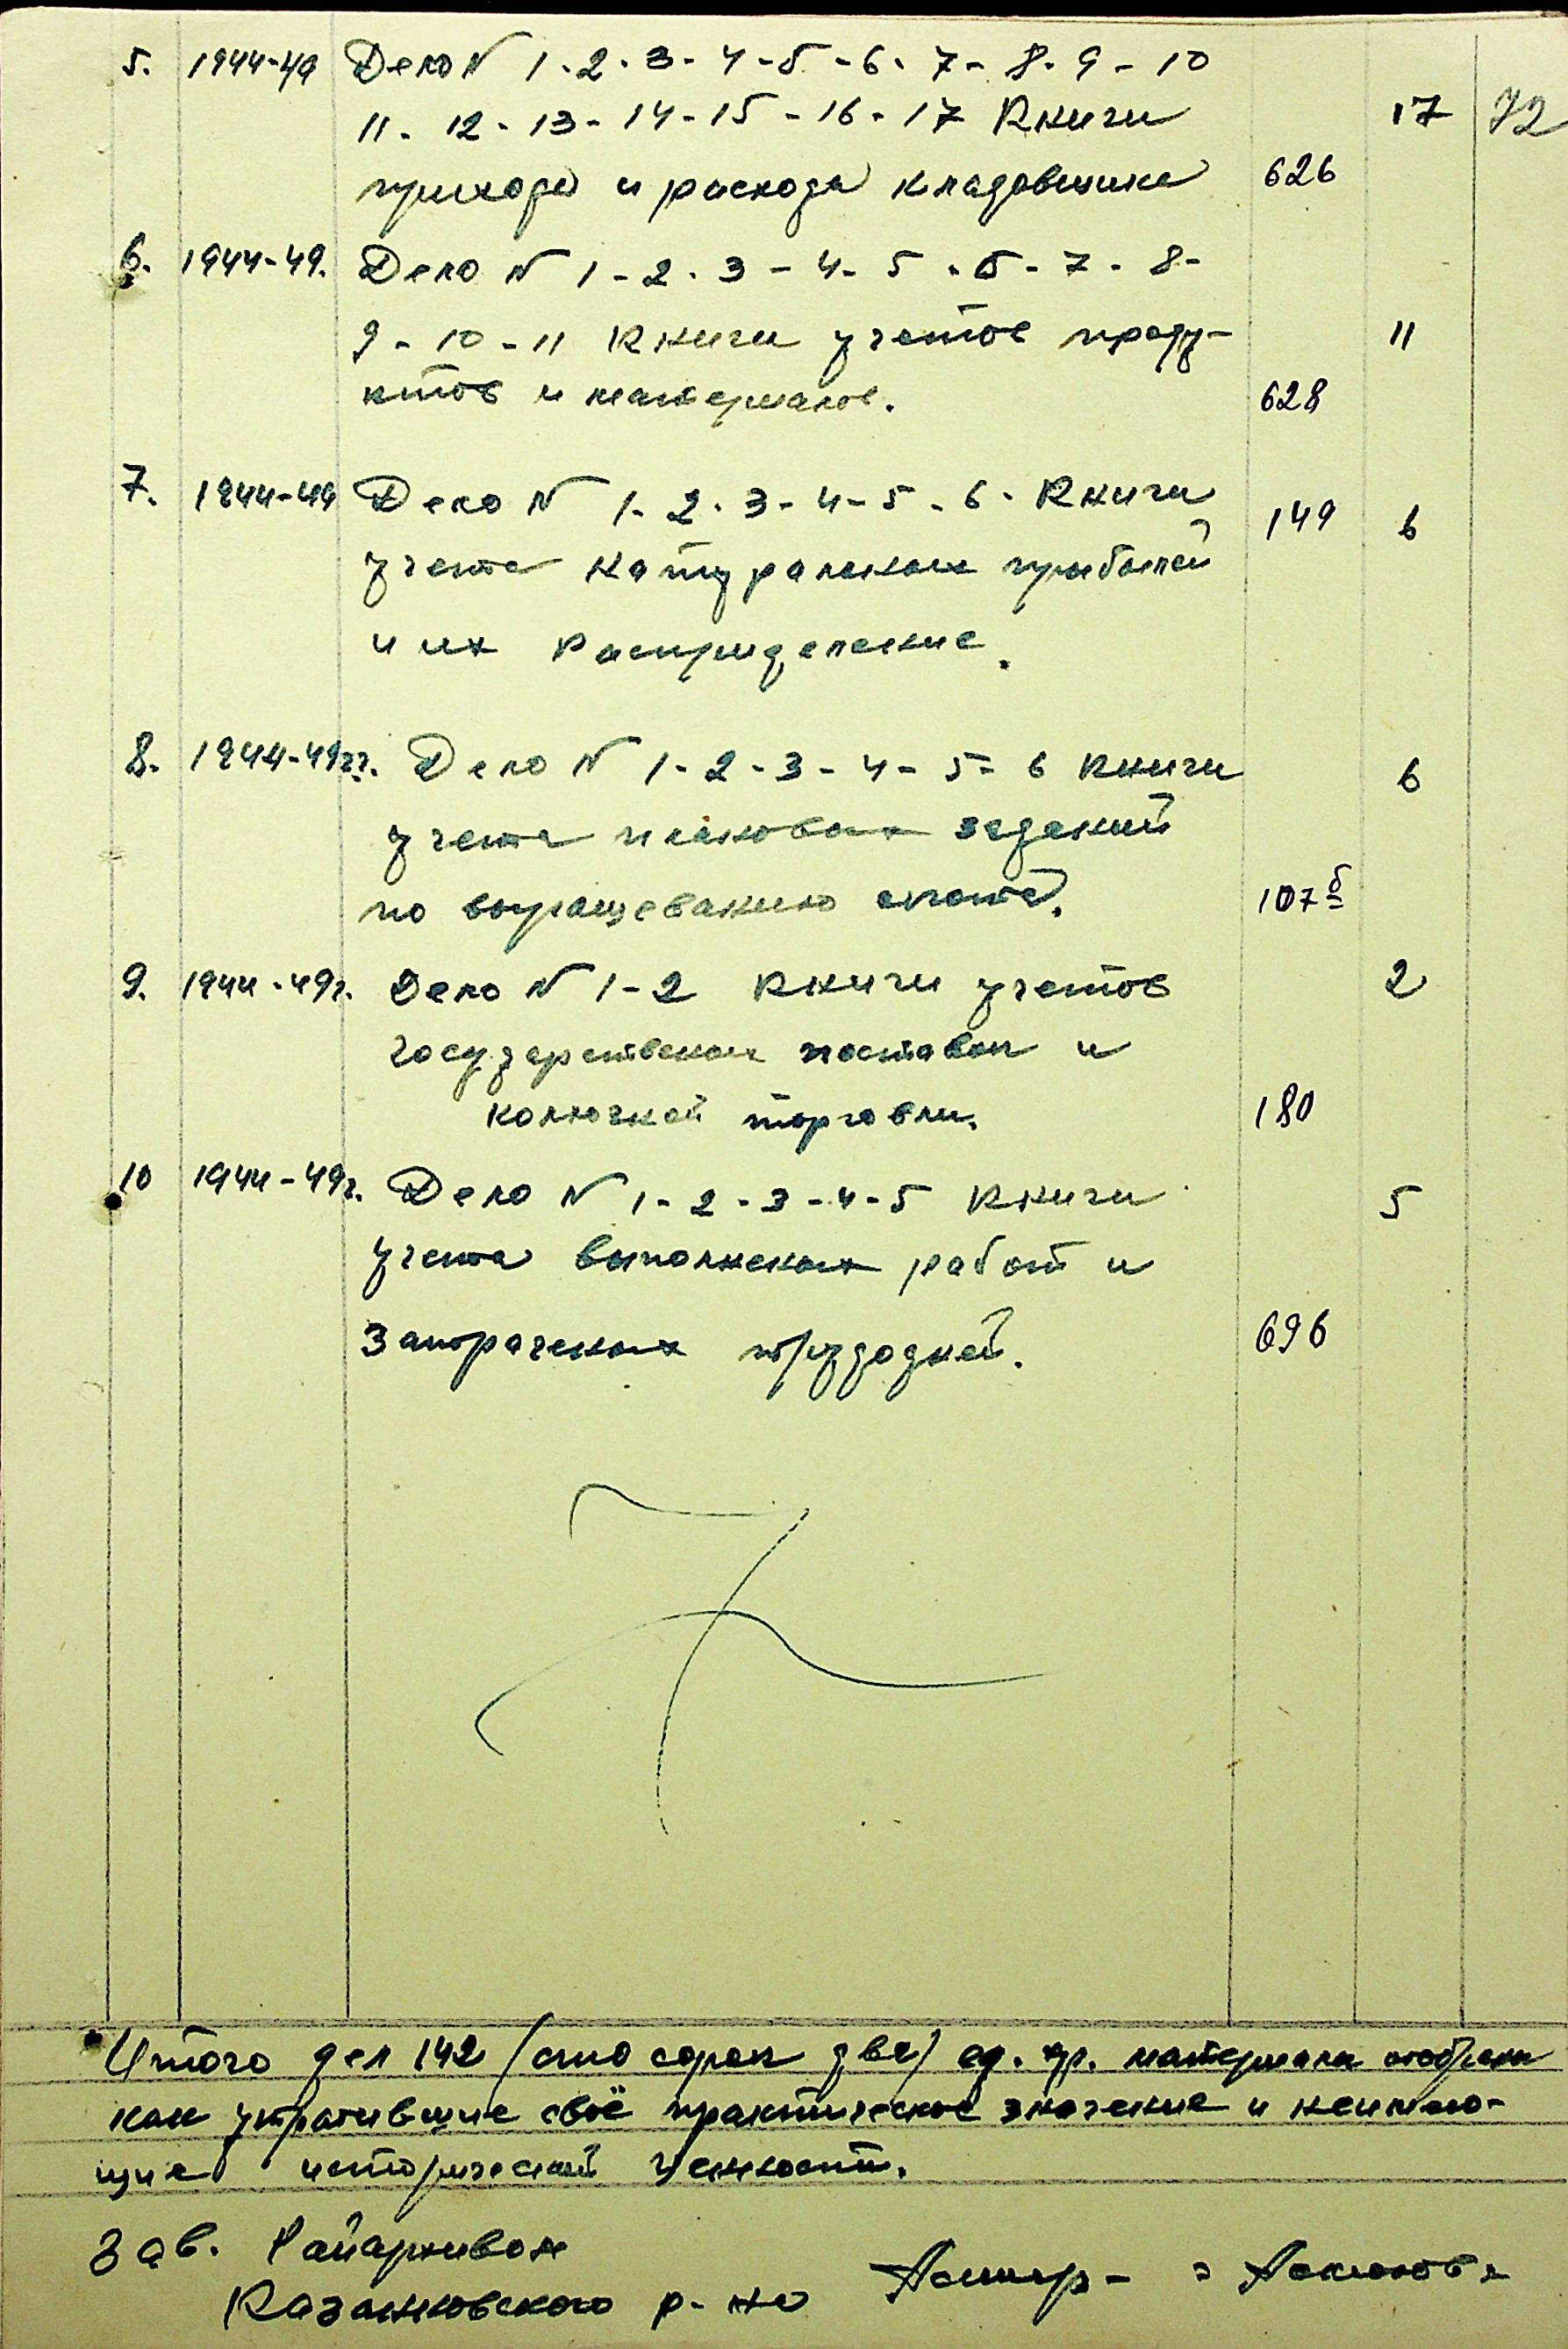 5. 1944-49 Дело N 1-2-3-4-5-6-7-8-9-10
11-12-13-14-15-16-17 Книги 17 72
прихода и расхода кладовщика 626
6. 1944-49. Дело N 1-2-3-4-5-6-7-8-
9-10-11 Книги учетов проду- 11
ктов и материалов. 628
7. 1944-49 Дело N 1-2-3-4-5-6- Книги 149 6
учета натуральных прибылей
и их распридиление.
8. 1944-49гг. Дело N 1-2-3-4-5-6 Книги 6
учета плановых заданий
по выращеванию скота. 107б
9. 1944-49г. Дело N 1-2 Книги учетов 2
государственых поставок и
торговли. 180
10 1944-49г. Дело N 1-2-3-4-5 Книги 5
учета выполненых работ и
Затраченых трудодней. 696
Итого дел 142 (сто сорок два) ед. хр. материалы отобраны
как утратившие своё практическое значение и неимею-
щие исторический ценности.
Зав. Райархивом
Казанковского р-на